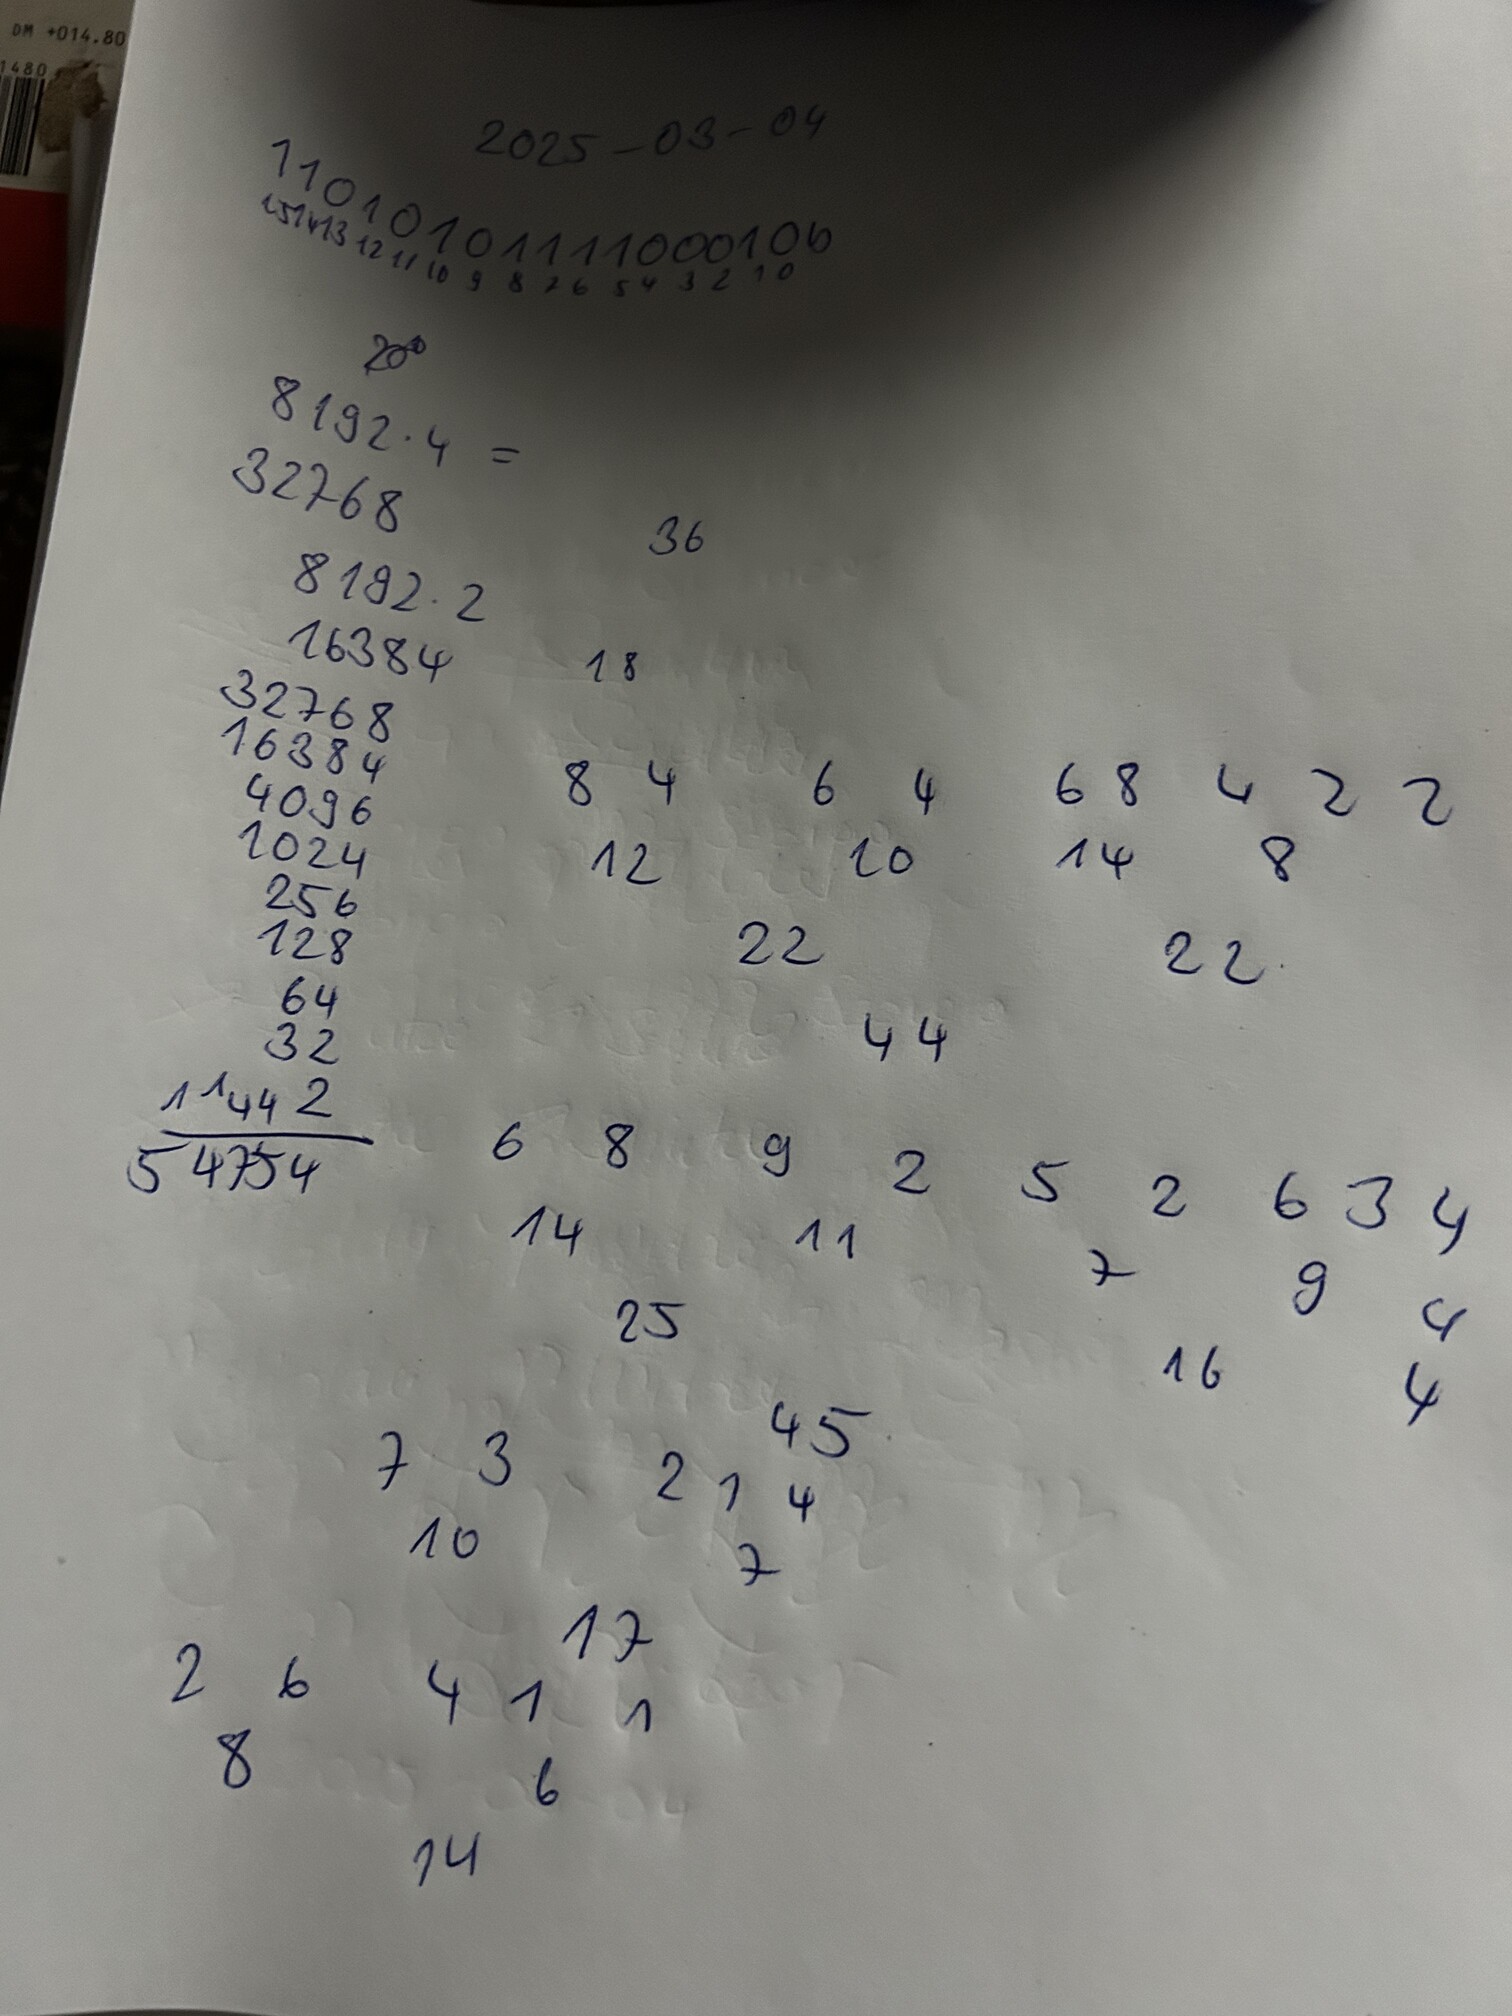 DM +014.80
1480
2025-03-04
1101010111100010b
15 14 13 12 11 10 9 8 7 6 5 4 3 2 1 0
8192·4 =
32768
36
8192·2
16384
18
32768
16384
4096
1024
256
128
64
32
11442
54754
8 4 6 4 6 8 4 2 2
12 10 14 8
22 22
44
6 8 9 2 5 2 6 3 4
14 11 7 9 4
25 16 4
45
7 3 2 1 4
10 7
17
2 6 4 1 1
8 6
14